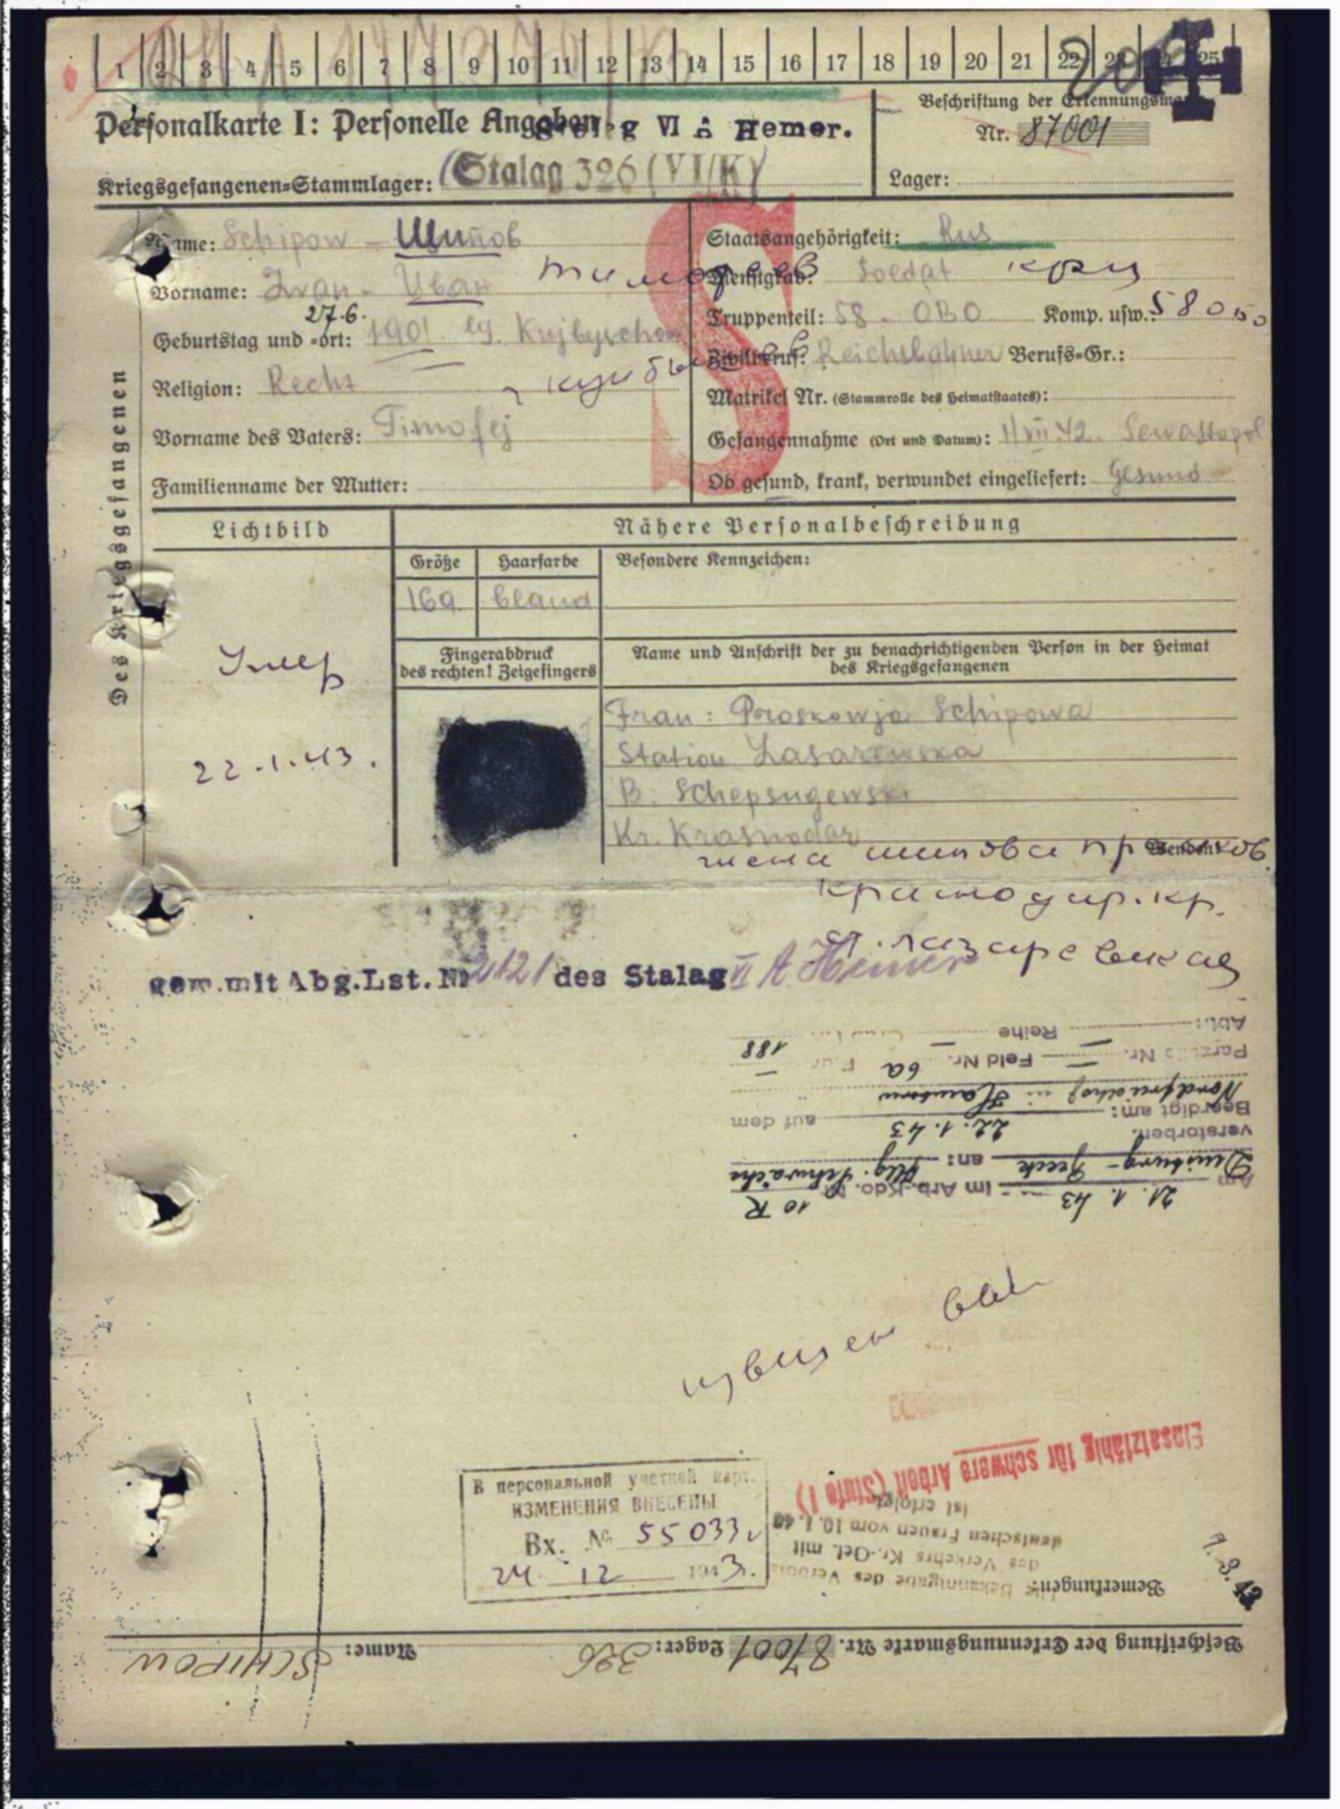 1 2 3 4 5 6 7 8 9 10 11 12 13 14 15 16 17 18 19 20 21 22 23 25
Personalkarte I: Personelle Angaben VI A Hemer.
Beschriftung der Erkennungsmarke
Nr. 87001
Kriegsgefangenen-Stammlager: (Stalag 326 (VI/K)
Lager:
Des Kriegsgefangenen
Name: Schipow - Щипов
Staatsangehörigkeit: Rus
Vorname: Iwan - Иван Тимофеев
Dienstgrad: Soldat кр-ц
27.6.
Geburtstag und -ort: 1901 Kujbyschow
Truppenteil: 58 - OBO Komp. usw.: 58
Zivilberuf: Reichsbahner Berufs-Gr.:
Religion: Recht
Matrikel Nr. (Stammrolle des Heimatstaates):
Vorname des Vaters: Timofej
Gefangennahme (Ort und Datum): 1/VII.42. Sewastopol
Familienname der Mutter:
Ob gesund, krank, verwundet eingeliefert: Gesund
Lichtbild
Nähere Personalbeschreibung
Größe Haarfarbe Besondere Kennzeichen:
169 bland
Fingerabdruck
des rechten! Zeigefingers
Name und Anschrift der zu benachrichtigenden Person in der Heimat
des Kriegsgefangenen
Умер
22.1.43.
Frau: Proskowja Schipowa
Station Lasarewska
B. Schepsugewski
Kr. Krasnodar
Wenden!
жена Шипова
Краснодар. кр.
ст. Лазаревская
gem.mit Abg.Lst.Nr 2121 des Stalag VI A Hemer
Abt.: Reihe
Parzelle Nr. — Feld Nr. 6a 188
Nordfriedhof in Hamborn
Beerdigt am: 22.1.43 auf dem
verstorben.
Duisburg-Beeck an: Allg. Schwäche
Am 21.1.43 im Arb.Kdo. 10 R
извещен
Einsatzfähig für schwere Arbeit (Stufe I)
Die Bekanntgabe des Verbots
des Verkehrs Kr.-Gef. mit
deutschen Frauen vom 10.1.40
ist erfolgt
Bemerkungen:
В персональной учетной карт.
ИЗМЕНЕНИЯ ВНЕСЕНЫ
Вх. № 55033
24 12 1943г.
Beschriftung der Erkennungsmarke Nr. 87001 Lager: 326 Name: SCHIPOW